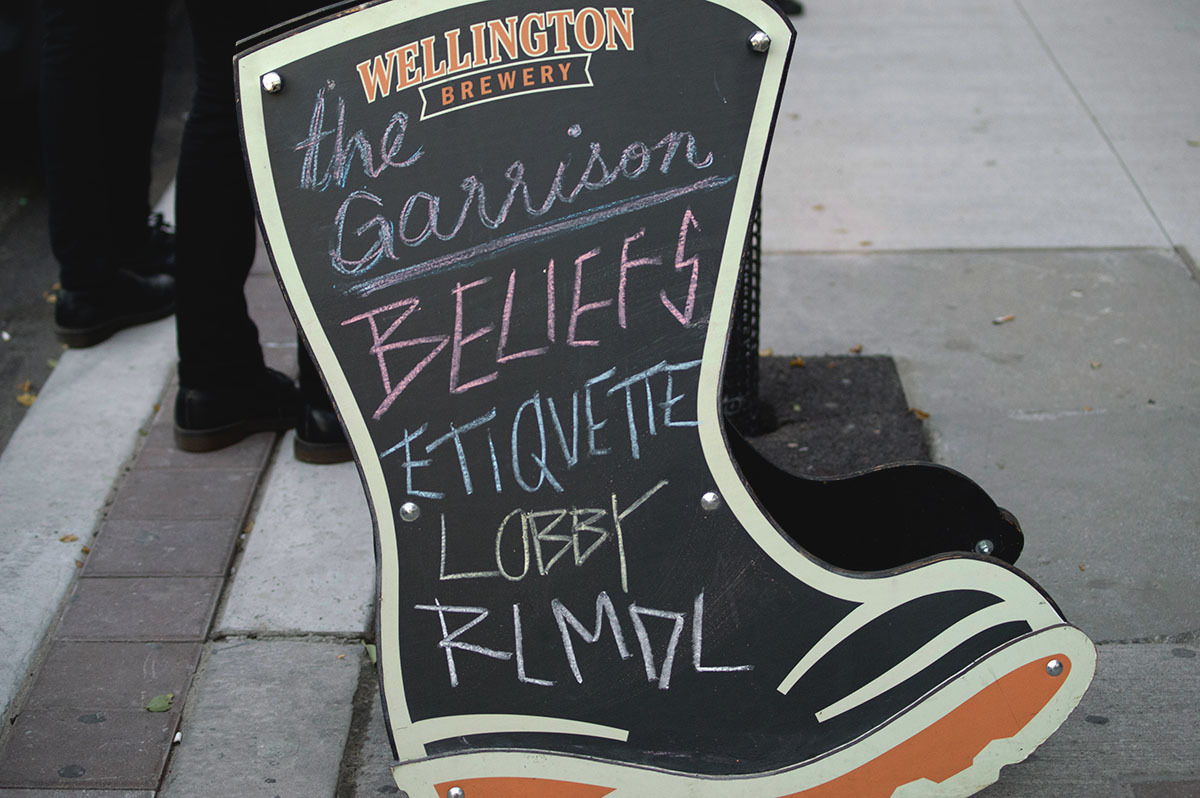 WELLINGTON
BREWERY
the
Garrison
BELIEFS
ETIQUETTE
LOBBY
RLMDL